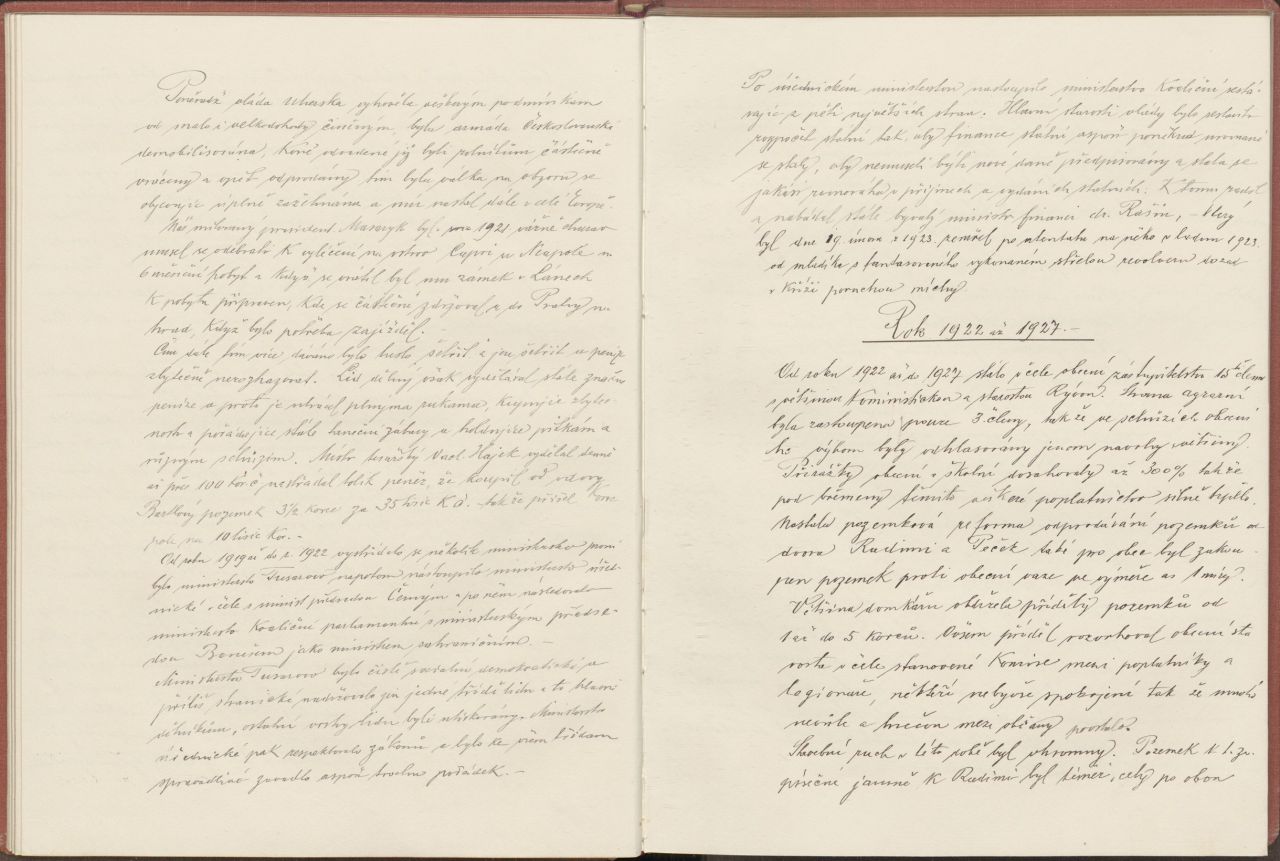 Poněvadž vláda Uherska vyhověla veškerým podmínkám
od malo i velkodohody činěným, byla armáda Československá
demobilisována, Koně odvedené jíž byli rolníkům částečně
vráceny a opět odprodány tím byla válka na obzoru se
objevující úplně zažehnána a mír nastal dále v celé Evropě.
Náš milovaný president Masaryk byl roce 1921 vážně churav
musel se odebrati K vyléčení na ostrov Capri u Neapole na
6 měsíční pobyt a Když se vrátil byl mu zámek v Lánech
K pobytu připraven, Kde se částečně zdržoval a do Prahy na
hrad, Když bylo potřeba zajížděl. -
Čím dále tím více dáváno bylo heslo, šetřit a jen šetřit a peníze
zbytečně nerozhazovat. Lid dělný však vydělával stále značné
peníze a proto je utrácel plnýma rukama, Kupujíce zbyteč-
nosti a pořádajíce stále taneční zábavy a holdujíce pitkám a
různým schůzím. Mistr tesařský Václ. Hájek vydělal denně
až přes 100 Kč nestrádal tolik peněz, že koupil od vdovy
Bartlovy pozemek 3 1/2 korce za 35 tisíc Kč. takže přišel Korec
pole na 10 tisíc Kč. -
Od roku 1919 až do r. 1922 vystřídalo se několik ministerstev první
bylo ministerstvo Tusarovo napotom nastoupilo ministerstvo úřed-
nické v čele s minist. předsedou Černým a po něm následovalo
ministerstvo Koaliční parlamentní s ministerským předse-
dou Benešem jako ministrem zahraničním. -
Ministerstvo Tusarovo bylo čistě socialní demokratické, a
příliš stranické nadržovalo jen jedné třídě lidu a to hlavně
dělníkům, ostatní vrstvy lidu byli utiskovány. Ministerstvo
úřednické pak respektovalo zákonů a bylo ke všem třídám
spravedlivé zavedlo aspoň trochu pořádek. -
Po úřednickém ministerstvu nastoupilo ministerstvo Koaliční sestá-
vající z pěti největších stran. Hlavní starostí vlády bylo sestaviti
rozpočet statní tak, aby finance statní aspoň poněkud urovnané
se staly, aby nemuseli býti nové daně předpisovány a stala se
jakási rovnováha v příjmech a vydáních statních. K tomu radil
a nabádal stále bývalý ministr financí dr. Rašín, - Který
byl dne 19. února r 1923. zemřel po atentatu na něho v lednu 1923.
od mladíka s fantasovaného vykonaném střelou revolveru do zad
v Kříži porvchou míchy
Rok 1922 až 1927. -
Od roku 1922 až do 1927 stálo v čele obecní zastupitelstvo 15ti členné
s většinou Kominističkou a starostou Rýdon. Strana agrární
byla zastoupena pouze 3 členy, tak že ve schůzích obecní
ho výboru byly odhlasovány jenom navrhy většiny.
Přirážky obecní a školní dosahovaly až 300% takže
pod břemeny těmito veškeré poplatnictvo silně trpělo.
Nastala pozemková reforma, odprodávání pozemků od
dvora Radimi a Peček také pro obec byl zakou-
pen pozemek proti obecní vaze ve výměře as 1 míry.
Většina domkářů obdržela příděly pozemků od
1 až do 5 korců. Ovšem příděl rozvrhoval obecní sta
rosta v čele stanovené Komise mezi poplatníky a
legionáře, někteří nebyvše spokojeni tak že mnoho
nevole a hněvu mezi občany povstalo.
Stavební ruch v této době byl ohromný. Pozemek N 1. za
písečné jamně K Radimi byl téměř celý po obou